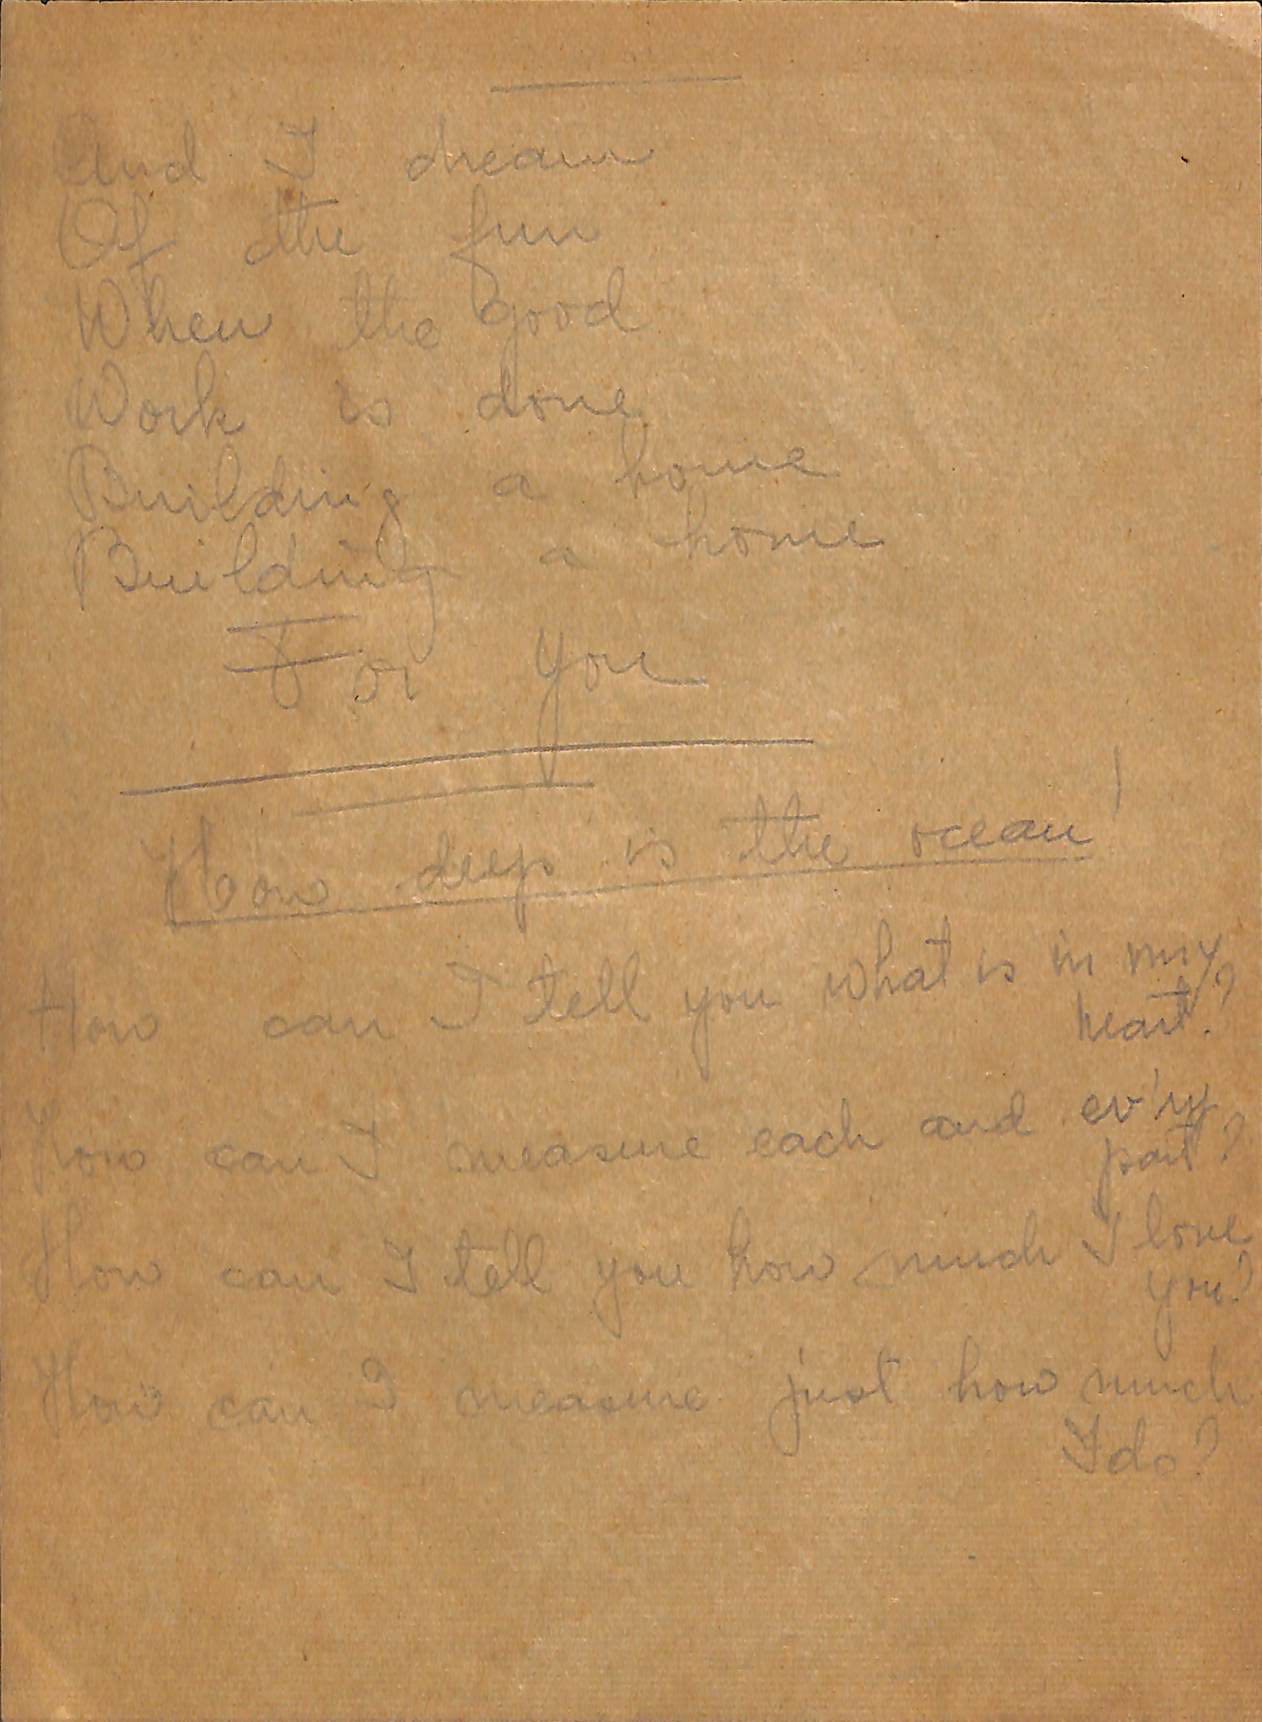 And I dream
Of the fun
When the good
Work is done
Building a home
Building a home
For you
How deep is the ocean!
How can I tell you what is in my
heart?
How can I measure each and ev'ry
part?
How can I tell you how much I love
you?
How can I measure just how much
I do?